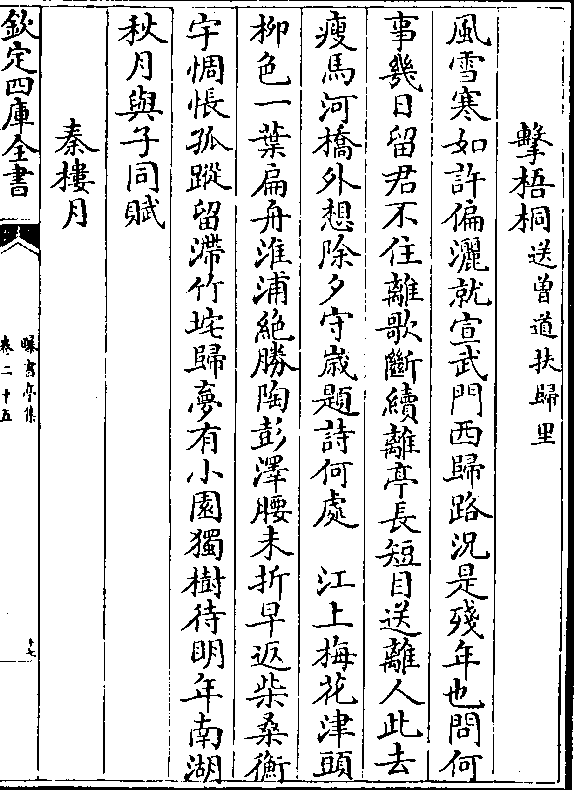 擊梧桐送曾道扶歸里
風雪寒如許偏灑就宣武門西歸路況是殘年也問何
事幾日留君不住離歌斷續離亭長短目送離人此去
瘦馬河橋外想除夕守歲題詩何處　江上梅花津頭
柳色一葉扁舟淮浦絶勝陶彭澤腰未折早返柴桑衡
宇惆悵孤蹤留滯竹垞歸夢有小園獨樹待明年南湖
秋月與子同賦
秦樓月
欽定四庫全書
曝書亭集
卷二十五
十七